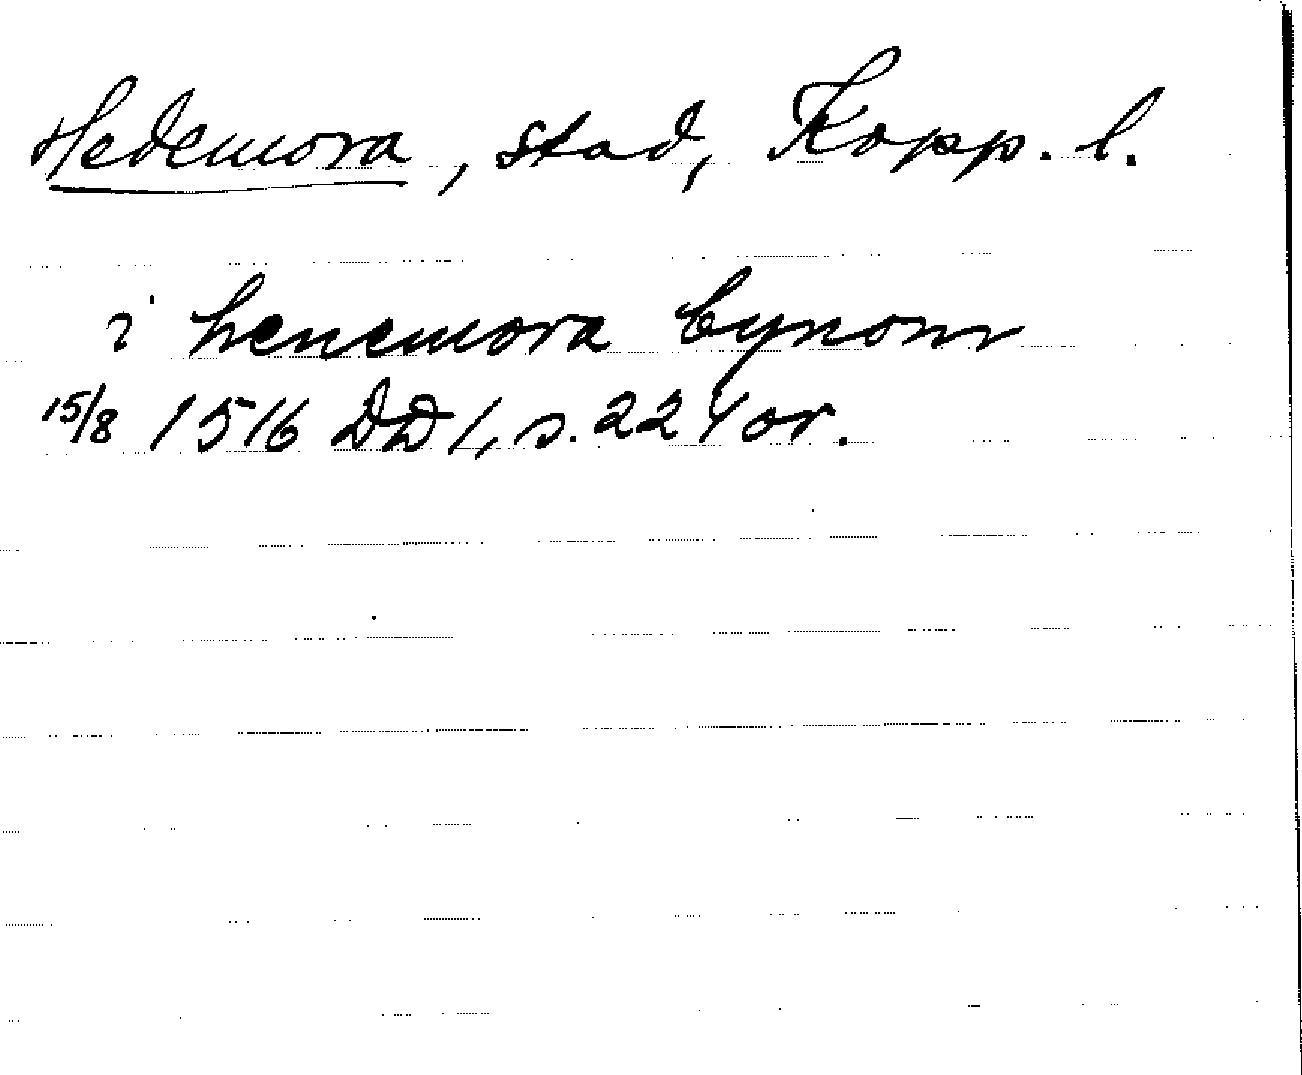 Hedemora, stad, Kopp. l.
i henemora bynom
15/8 1516 DD 1, s. 224 or.